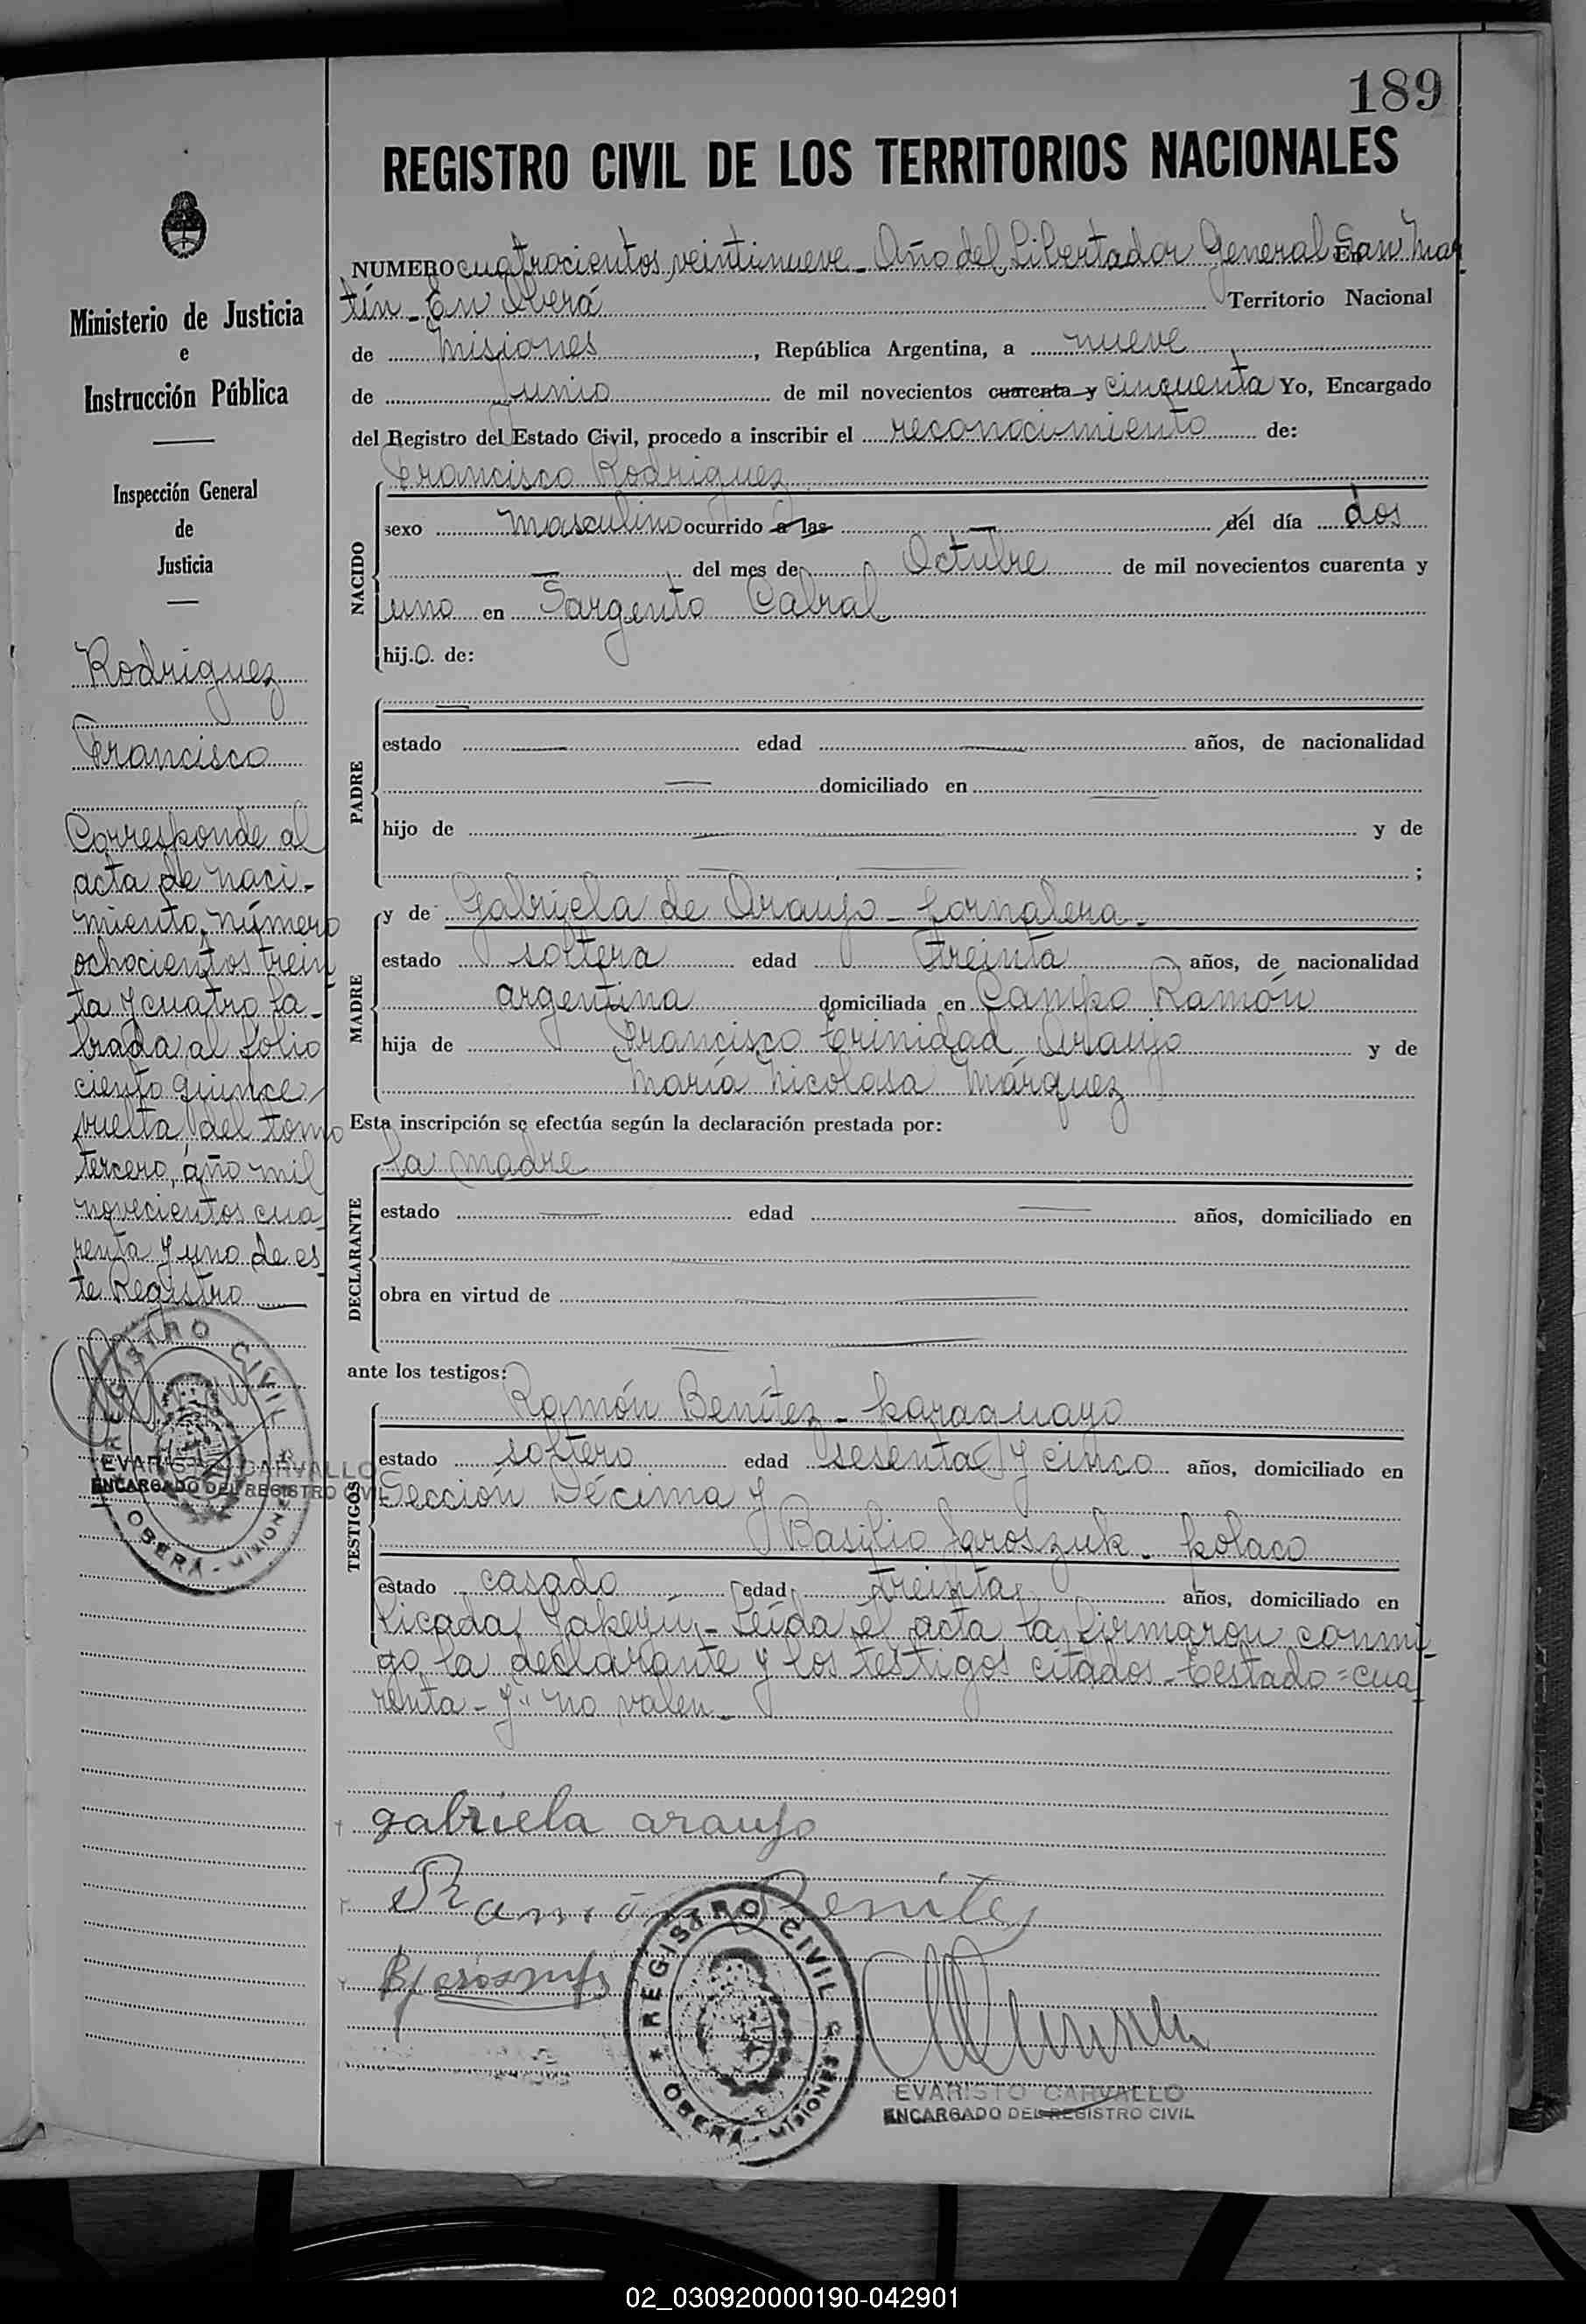 189
REGISTRO CIVIL DE LOS TERRITORIOS NACIONALES
NUMERO cuatrocientos veintinueve - Año del Libertador General San Mar-
tín - En Oberá Territorio Nacional
de Misiones, República Argentina, a nueve
de Junio de mil novecientos cuarenta y cinquenta Yo, Encargado
del Registro del Estado Civil, procedo a inscribir el reconocimiento de:
Francisco Rodriguez
NACIDO
sexo masculino ocurrido a las — del día dos
— del mes de Octubre de mil novecientos cuarenta y
uno en Sargento Cabral
hijo de:
PADRE
—
estado — edad — años, de nacionalidad
— domiciliado en —
hijo de — y de
— ;
MADRE
y de Gabriela de Araujo - Jornalera -
estado soltera edad treinta años, de nacionalidad
argentina domiciliada en Campo Ramón
hija de Francisco Trinidad Araujo y de
María Nicolasa Márquez
Esta inscripción se efectúa según la declaración prestada por:
DECLARANTE
la madre
estado — edad — años, domiciliado en
—
obra en virtud de —
—
ante los testigos:
TESTIGOS
Ramón Benítez - paraguayo
estado soltero edad sesenta y cinco años, domiciliado en
Sección Décima y
Basilio Jaroszuk - polaco
estado casado edad treinta años, domiciliado en
Picada Yapeyú - Leída el acta la firmaron conmi-
go la declarante y los testigos citados - Testado = cua-
renta - y" no valen -
gabriela araujo
Ramón Benite
EVARISTO CARVALLO
ENCARGADO DEL REGISTRO CIVIL
REGISTRO CIVIL
OBERÁ - MISIONES
Ministerio de Justicia
e
Instrucción Pública
Inspección General
de
Justicia
Rodriguez
Francisco
Corresponde al
acta de naci-
miento número
ochocientos trein
ta y cuatro la-
brada al folio
ciento quince
vuelta del tomo
tercero, año mil
novecientos cua-
renta y uno de es-
te Registro
REGISTRO CIVIL
OBERÁ - MISIONES
EVARISTO CARVALLO
ENCARGADO DEL REGISTRO CIVIL
02_030920000190-042901